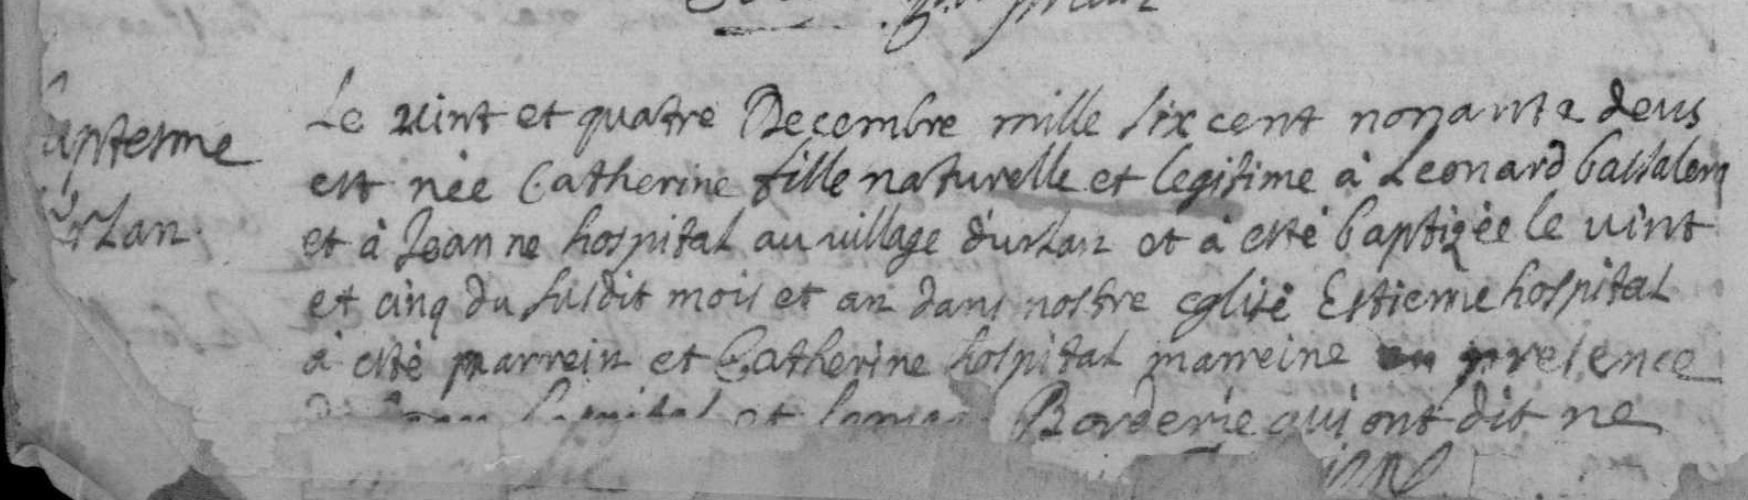 Baptesme
Urlan.
Le vint et quatre Decembre mille six cent nonante deus
est née Catherine fille naturelle et legitime à Leonard
et à Jeanne hospital au village d'urlan et à esté baptizée le vint
et cinq du susdit mois et an dans nostre eglise Estienne hospital
à esté parrein et Catherine hospital marreine en presence
hospital et Borderie qui ont dit ne